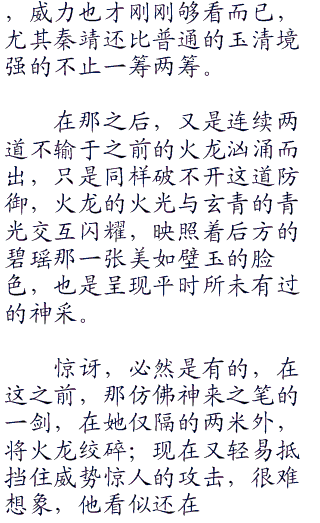 ，威力也才刚刚够看而已，
尤其秦靖还比普通的玉清境
强的不止一筹两筹。
在那之后，又是连续两
道不输于之前的火龙汹涌而
出，只是同样破不开这道防
御，火龙的火光与玄青的青
光交互闪耀，映照着后方的
碧瑶那一张美如壁玉的脸
色，也是呈现平时所未有过
的神采。
惊讶，必然是有的，在
这之前，那仿佛神来之笔的
一剑，在她仅隔的两米外，
将火龙绞碎；现在又轻易抵
挡住威势惊人的攻击，很难
想象，他看似还在